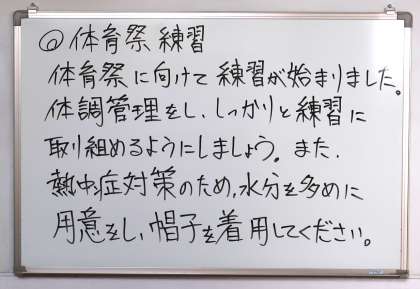 ◎体育祭 練習
体育祭に向けて練習が始まりました。
体調管理をし、しっかりと練習に
取り組めるようにしましょう。また、
熱中症対策のため、水分を多めに
用意をし、帽子を着用してください。